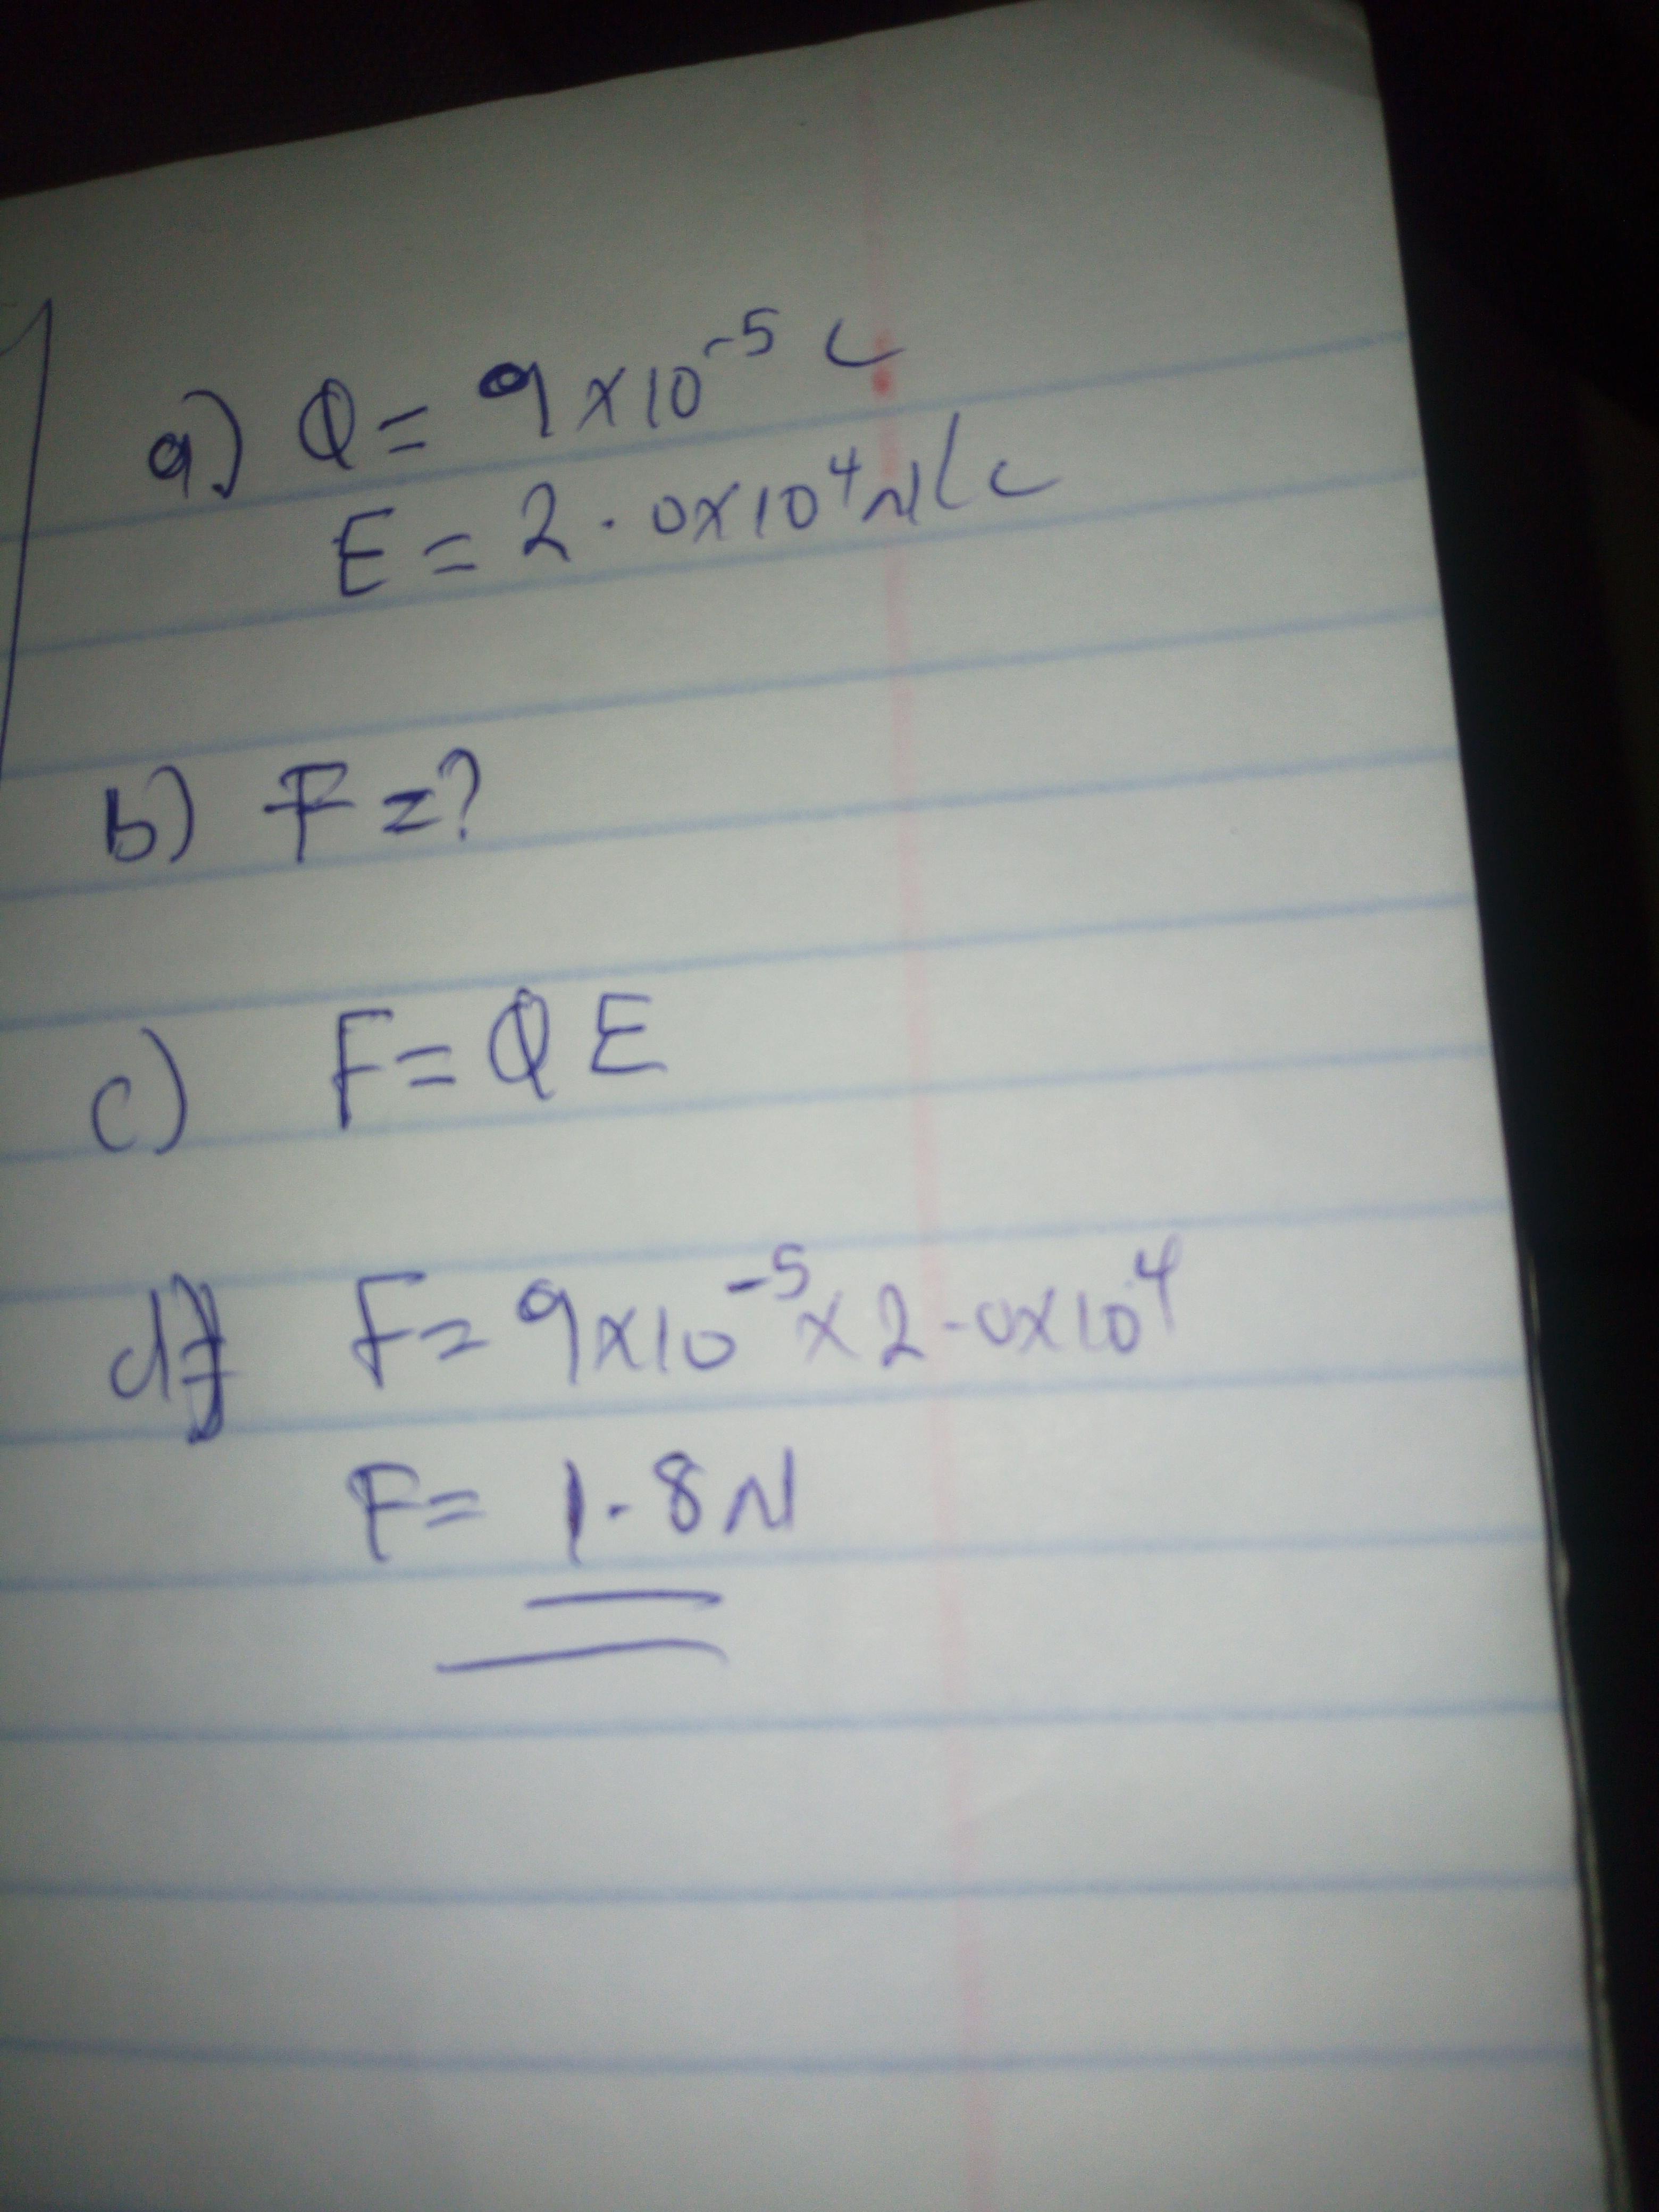 a) Q = 9 x 10⁻⁵ C
E = 2.0x10⁴ N/C
b) F = ?
c) F = QE
d) F = 9x10⁻⁵ x 2.0x10⁴
F = 1.8N